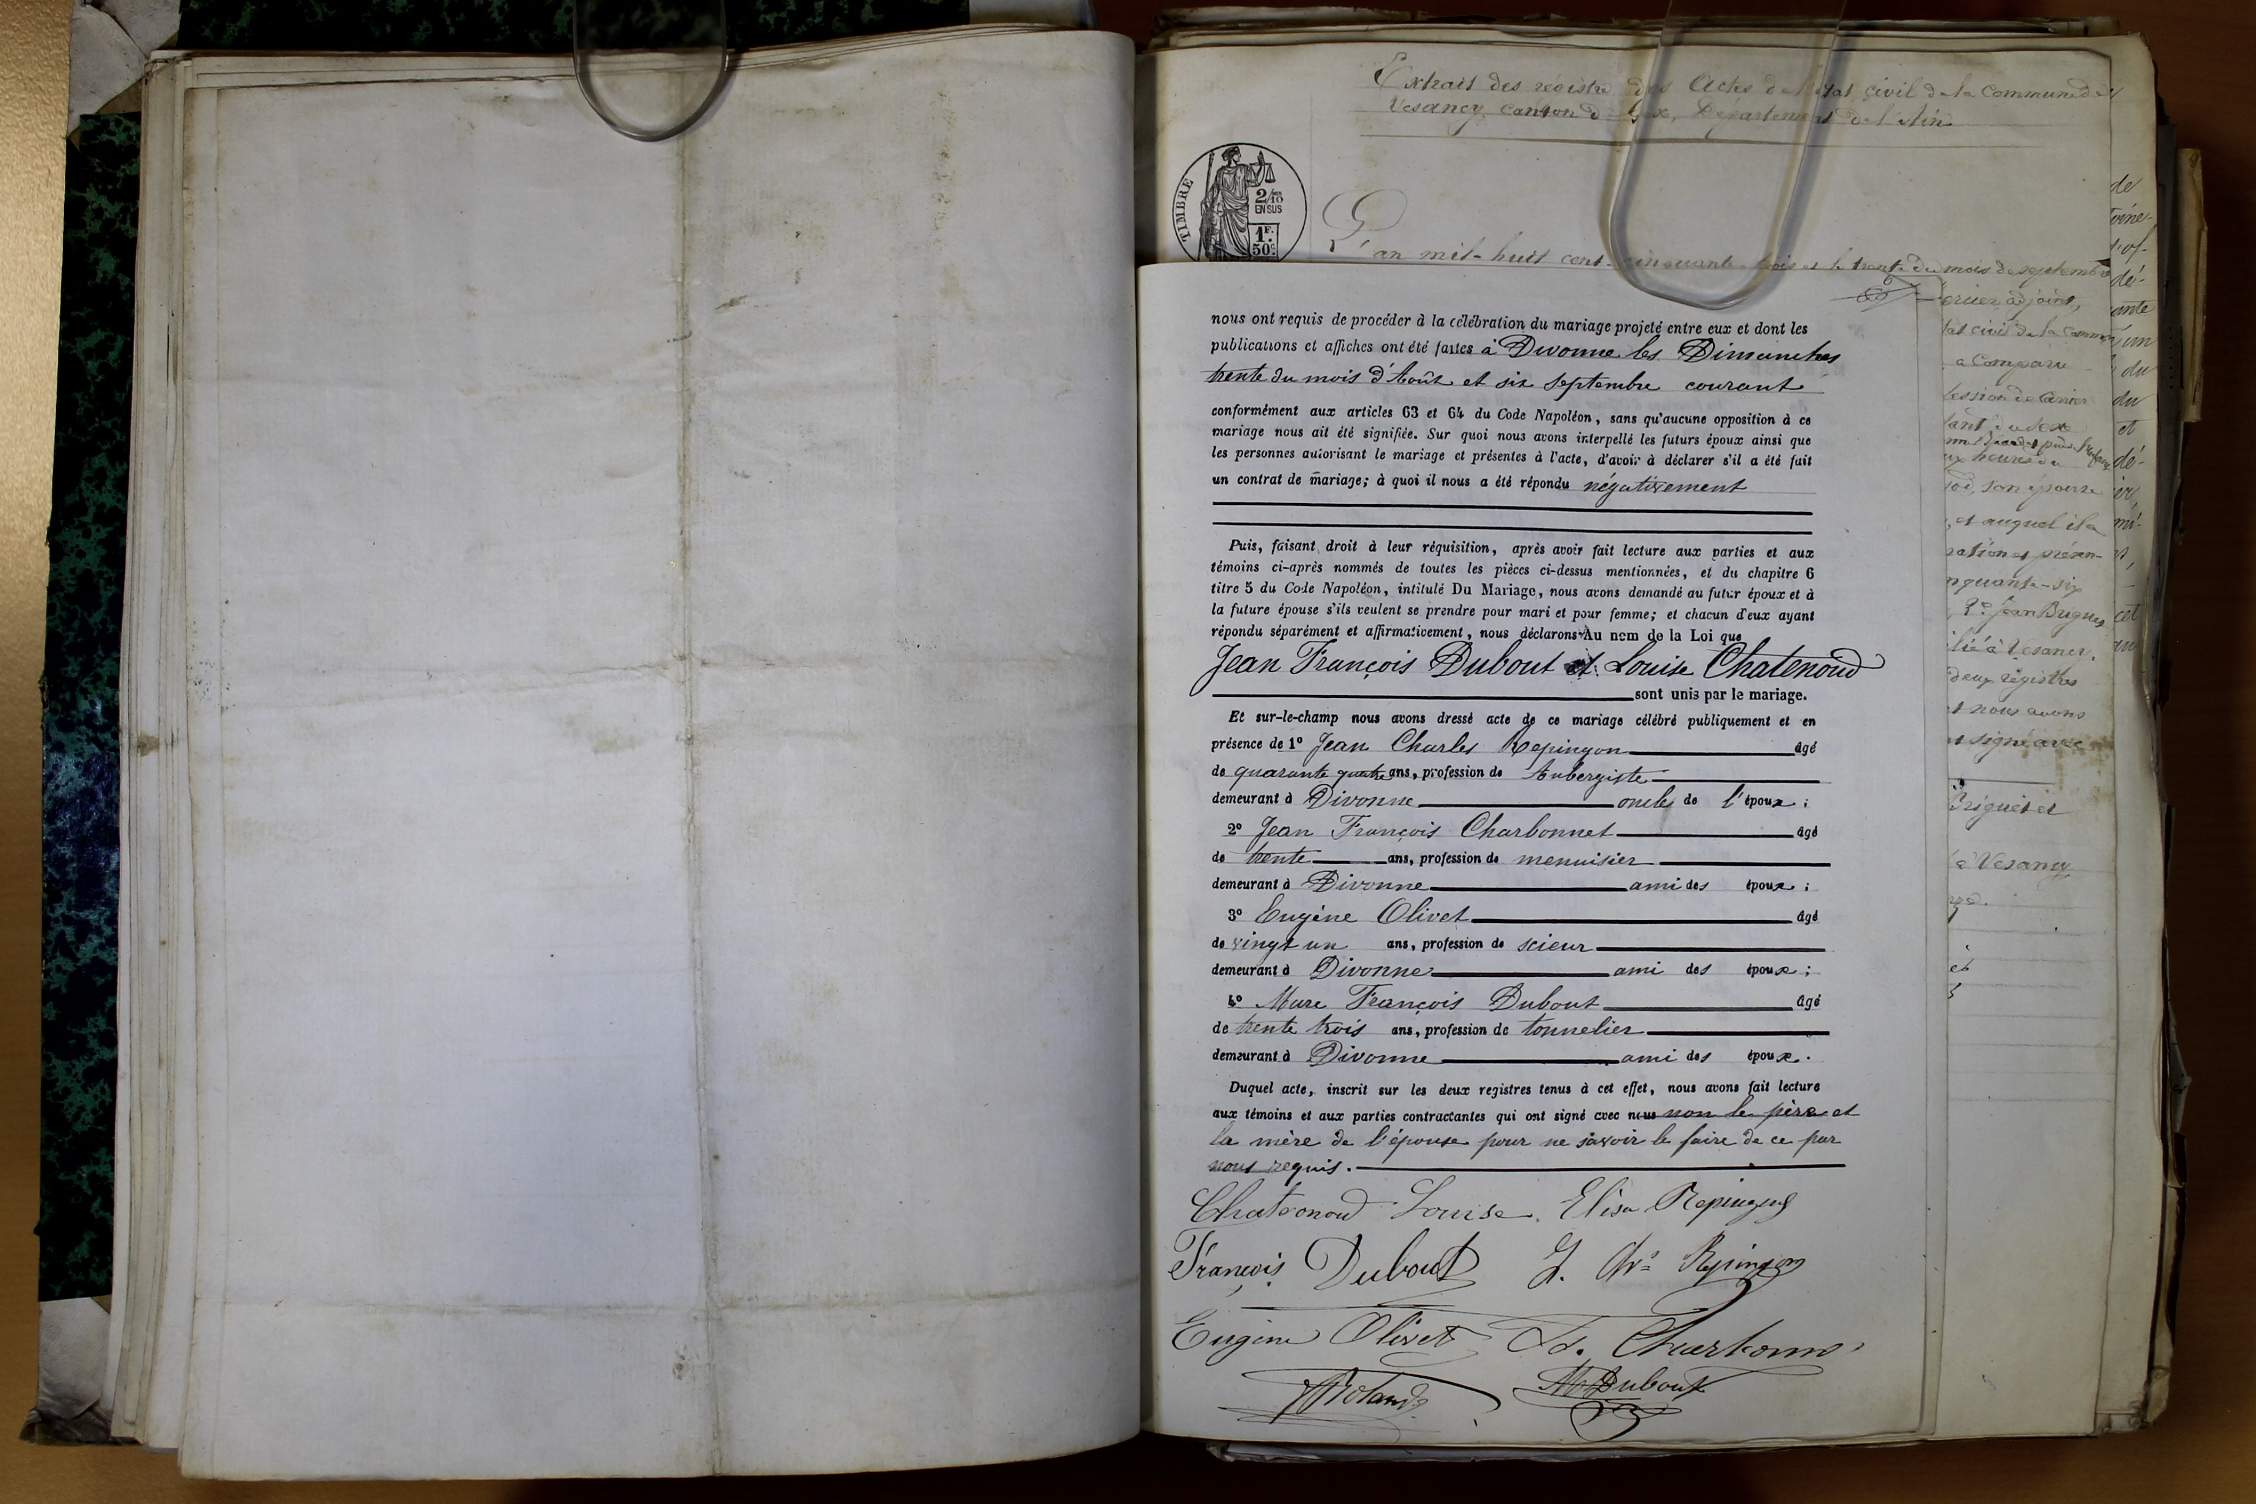 Extrait des régistre des Actes de l'état civil de la Commune de
Vesancy, canton de Gex, Département de l'Ain
TIMBRE
2/10
EN SUS
1F.
50c.
L'an mil-huit cent-cinquante-trois et le trente du mois de septembre
nous ont requis de procéder à la célébration du mariage projeté entre eux et dont les
publications et affiches ont été faites à Divonne les Dimanches
trente du mois d'Août et six septembre courant
conformément aux articles 63 et 64 du Code Napoléon, sans qu'aucune opposition à ce
mariage nous ait été signifiée. Sur quoi nous avons interpellé les futurs époux ainsi que
les personnes autorisant le mariage et présentes à l'acte, d'avoir à déclarer s'il a été fait
un contrat de mariage; à quoi il nous a été répondu négativement
Puis, faisant droit à leur réquisition, après avoir fait lecture aux parties et aux
témoins ci-après nommés de toutes les pièces ci-dessus mentionnées, et du chapitre 6
titre 5 du Code Napoléon, intitulé Du Mariage, nous avons demandé au futur époux et à
la future épouse s'ils veulent se prendre pour mari et pour femme; et chacun d'eux ayant
répondu séparément et affirmativement, nous déclarons Au nom de la Loi que
Jean François Dubout et Louise Chatenoud
sont unis par le mariage.
Et sur-le-champ nous avons dressé acte de ce mariage célébré publiquement et en
présence de 1º Jean Charles Repingon âgé
de quarante quatre ans, profession de Aubergiste
demeurant à Divonne oncle de l'époux;
2º Jean François Charbonnet âgé
de trente ans, profession de menuisier
demeurant à Divonne ami des époux;
3º Eugène Olivet âgé
de vingt un ans, profession de scieur
demeurant à Divonne ami des époux;
4º Marc François Dubout âgé
de trente trois ans, profession de tonnelier
demeurant à Divonne ami des époux.
Duquel acte, inscrit sur les deux registres tenus à cet effet, nous avons fait lecture
aux témoins et aux parties contractantes qui ont signé avec nous non le père et
la mère de l'épouse pour ne savoir le faire de ce par
nous requis.
Chatenoud Louise Elisa Repingon
François Dubout J. Chs Repingon
Eugène Olivet Fs. Charbonnet
Roland M Dubout
adjoint,
état civil de la commune
a Comparu
et auquel il a
cinquante-six
Jean Briguet
à Vesancy.
deux régistres
et nous avons
signé avec
Briguet et
à Vesancy
et
de
du
du
et
dé-
cet
au